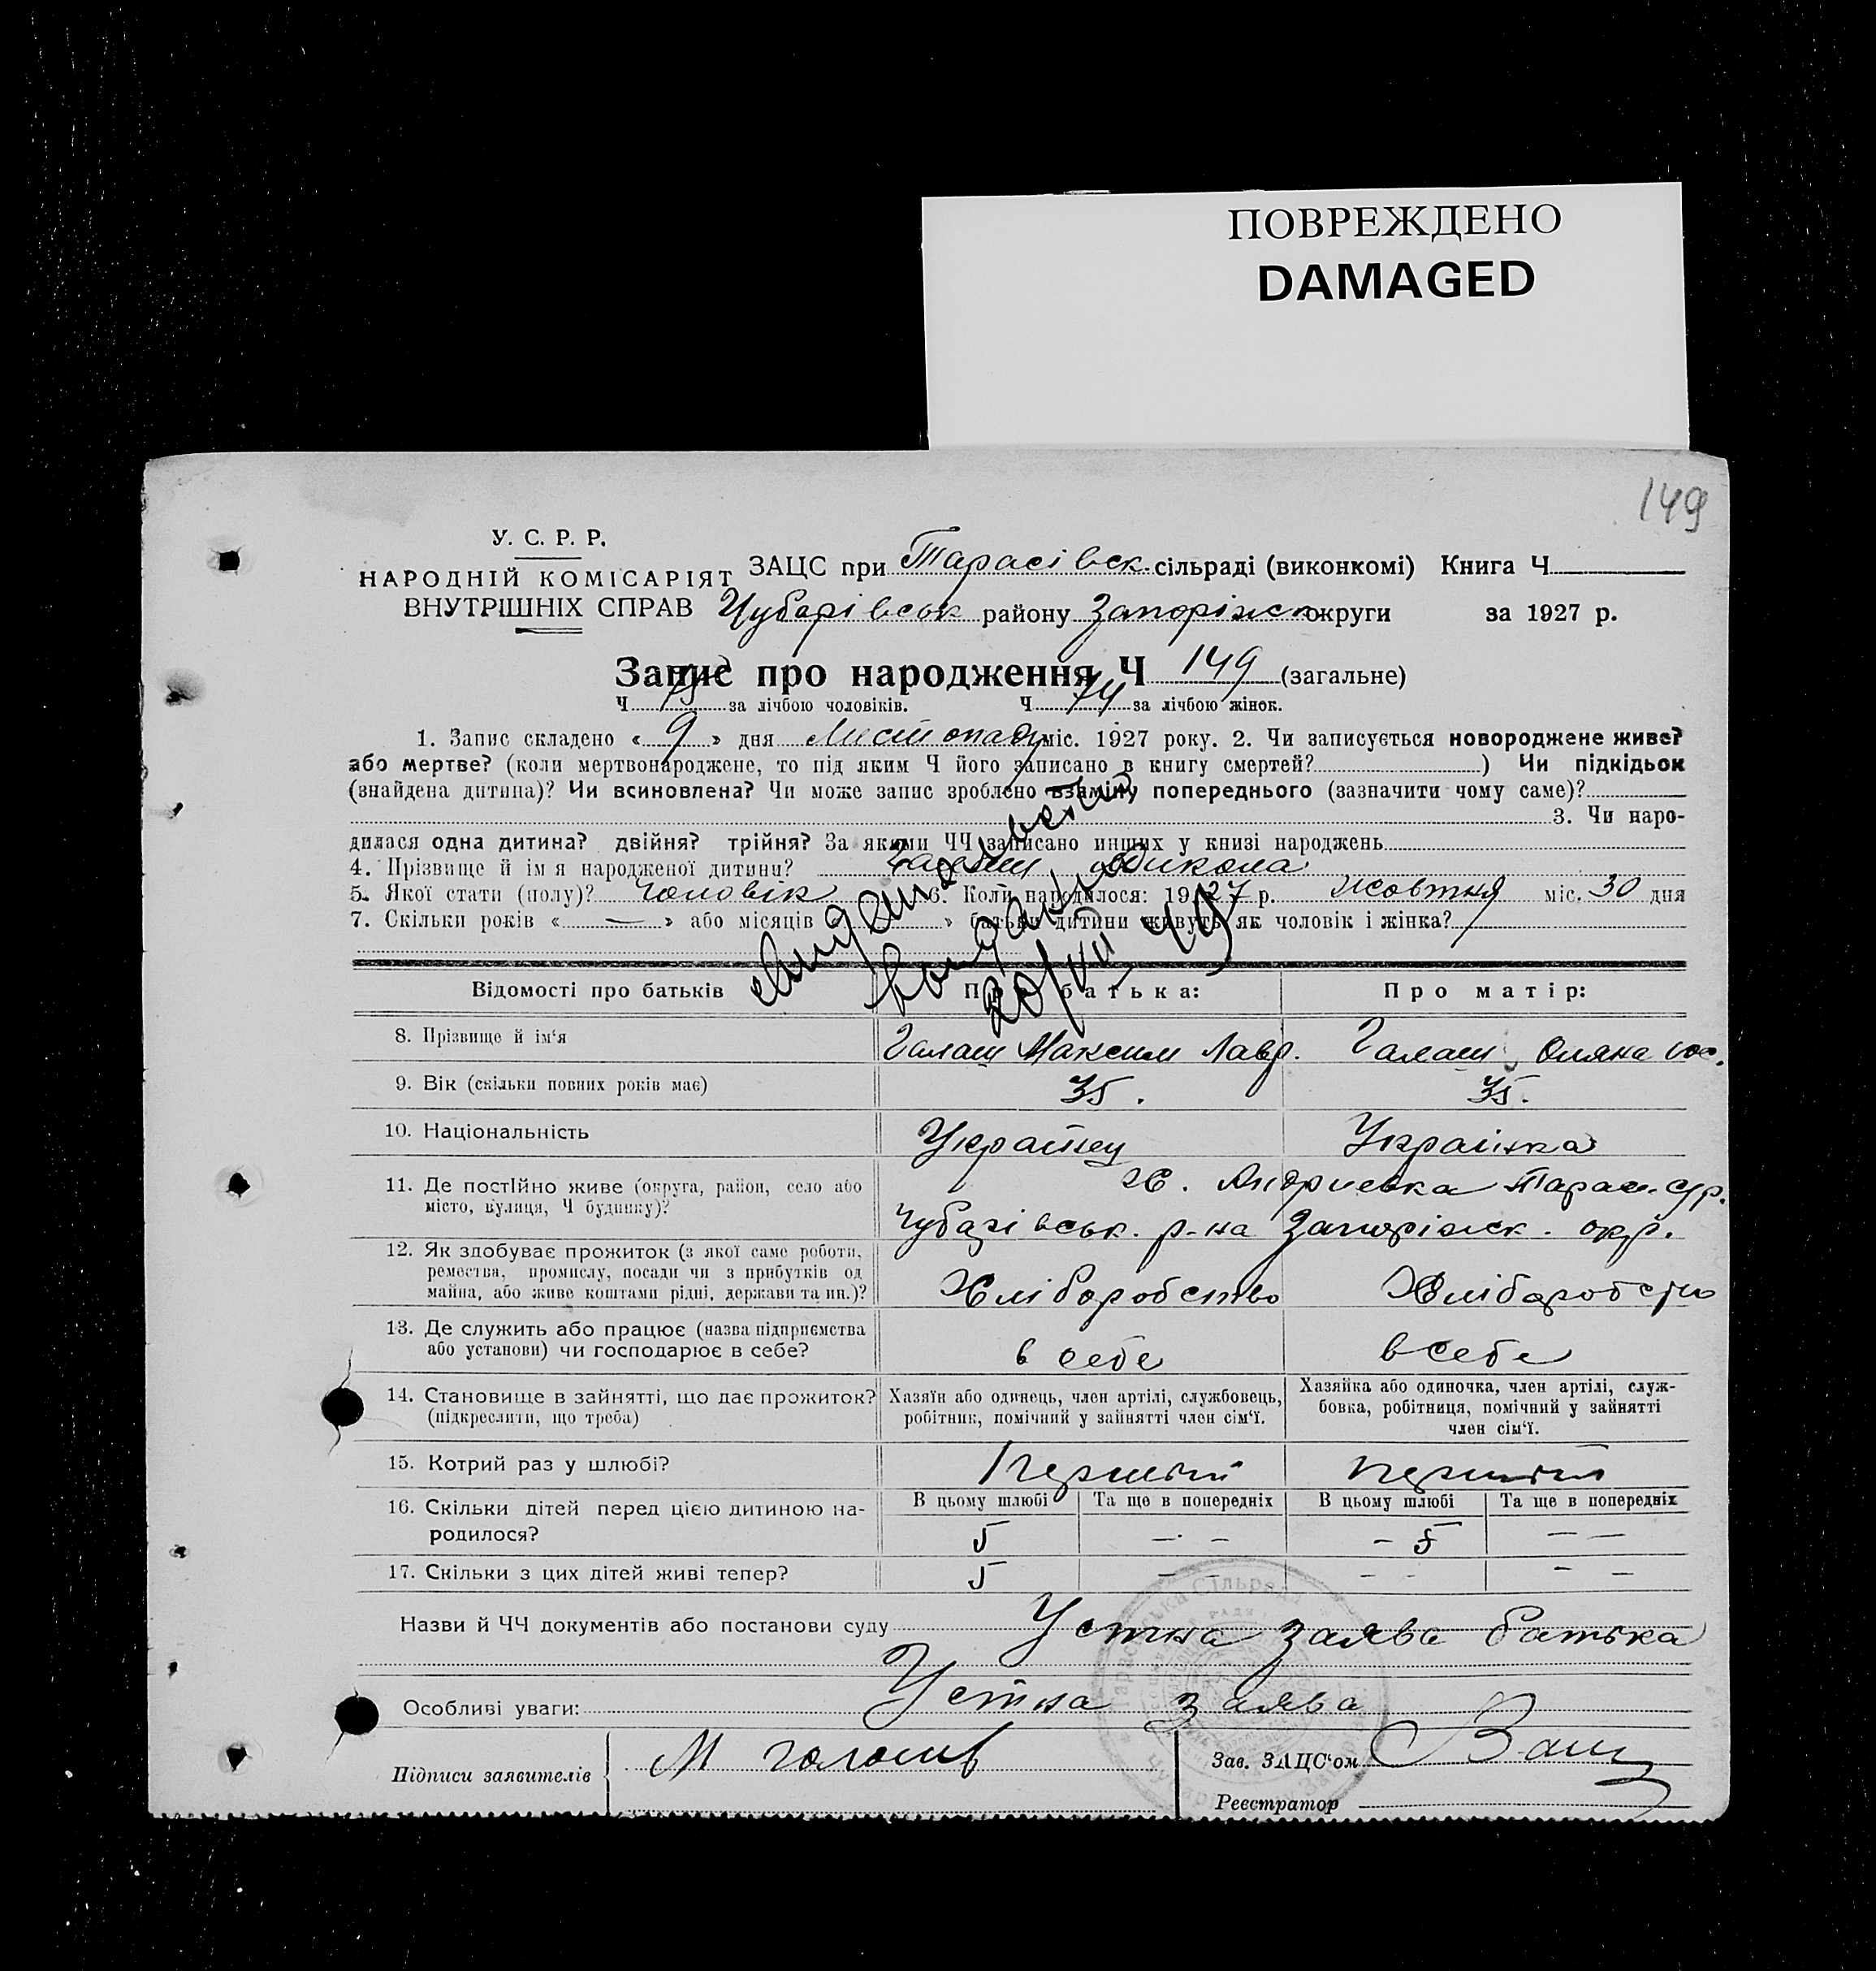 ПОВРЕЖДЕНО
DAMAGED
149
У. С. Р. Р.
НАРОДНІЙ КОМІСАРІЯТ
ВНУТРІШНІХ СПРАВ
ЗАЦС при Тарасівск. сільраді (виконкомі) Книга Ч
Чубарівськ району Запоріжск округи за 1927 р.
Запис про народження Ч 149 (загальне)
Ч 75 за лічбою чоловіків. Ч 74 за лічбою жінок.
1. Запис складено « 9 » дня Листопаду міс. 1927 року. 2. Чи записується новороджене живе?
або мертве? (коли мертвонароджене, то під яким Ч його записано в книгу смертей? ) Чи підкідьок
(знайдена дитина)? Чи всиновлена? Чи може запис зроблено взаміну попереднього (зазначити чому саме)?
3. Чи наро-
дилася одна дитина? двійня? трійня? За якими ЧЧ записано инших у книзі народжень
4. Прізвище й ім я народженої дитини? Галаш Микола
5. Якої стати (полу)? Чоловік 6. Коли народилося: 1927 р. жовтня міс. 30 дня
7. Скільки років « — » або місяців « » батьки дитини живуть як чоловік і жінка?
20/VII 49
Відомості про батьків Про батька: Про матір:
8. Прізвище й ім'я Галаш Максим Лавр. Галаш Оляна
9. Вік (скільки повних років має) 35. 35.
10. Національність Українец Українка
11. Де постійно живе (округа, район, село або
місто, вулиця, Ч будинку)?
Х. Андриевка Тарас. с/р.
Чубарівськ. р-на Запоріжск. окр.
12. Як здобуває прожиток (з якої саме роботи,
ремества, промислу, посади чи з прибутків од
майна, або живе коштами рідні, держави та ин.)?
Хліборобство Хліборобство
13. Де служить або працює (назва підприємства
або установи) чи господарює в себе?
в себе в себе
14. Становище в зайнятті, що дає прожиток?
(підкреслити, що треба)
Хазяїн або одинець, член артілі, службовець,
робітник, помічний у зайнятті член сім'ї.
Хазяйка або одиночка, член артілі, служ-
бовка, робітниця, помічний у зайнятті
член сім'ї.
15. Котрий раз у шлюбі? перший перший
16. Скільки дітей перед цією дитиною на-
родилося?
В цьому шлюбі Та ще в попередніх В цьому шлюбі Та ще в попередніх
5 — - – 5 — —
17. Скільки з цих дітей живі тепер? 5 – - – - – –
Назви й ЧЧ документів або постанови суду Устна заява батька
Особливі уваги: Устна заява
Підписи заявителів М
Зав. ЗАЦС'ом
Реєстратор